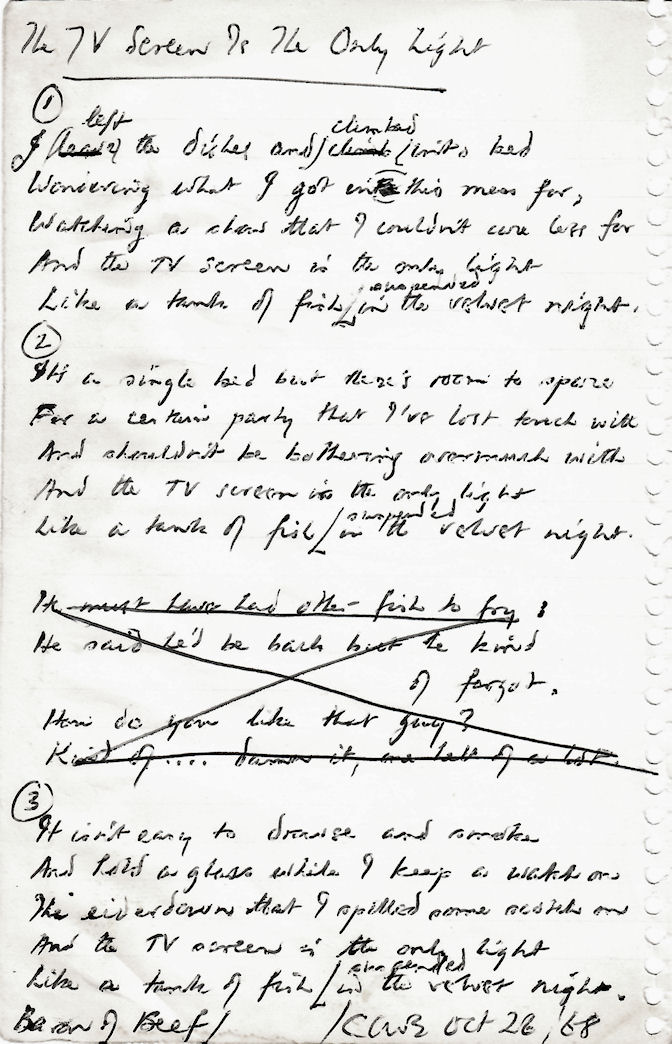 The TV Screen Is The Only Light
①
left climbed
I the dishes and / climb / into bed
Wondering what I got into this mess for,
Watching a show that I couldn't care less for
And the TV screen is the only light
suspended
Like a tank of fish / in the velvet night.
②
It's a single bed but there's room to spare
For a certain party that I've lost touch with
And shouldn't be bothering overmuch with
And the TV screen is the only light
suspended
Like a tank of fish / in the velvet night.
He must have had other fish to fry;
He said he'd be back but he kind
of forgot.
How do you like that guy?
Kind of .... damn it, one hell of a lot.
③
It isn't easy to drowse and smoke
And hold a glass while I keep a watch on
The eiderdown that I spilled some scotch on
And the TV screen is the only light
suspended
Like a tank of fish / in the velvet night.
Baron of Beef / / Oct 26, 68